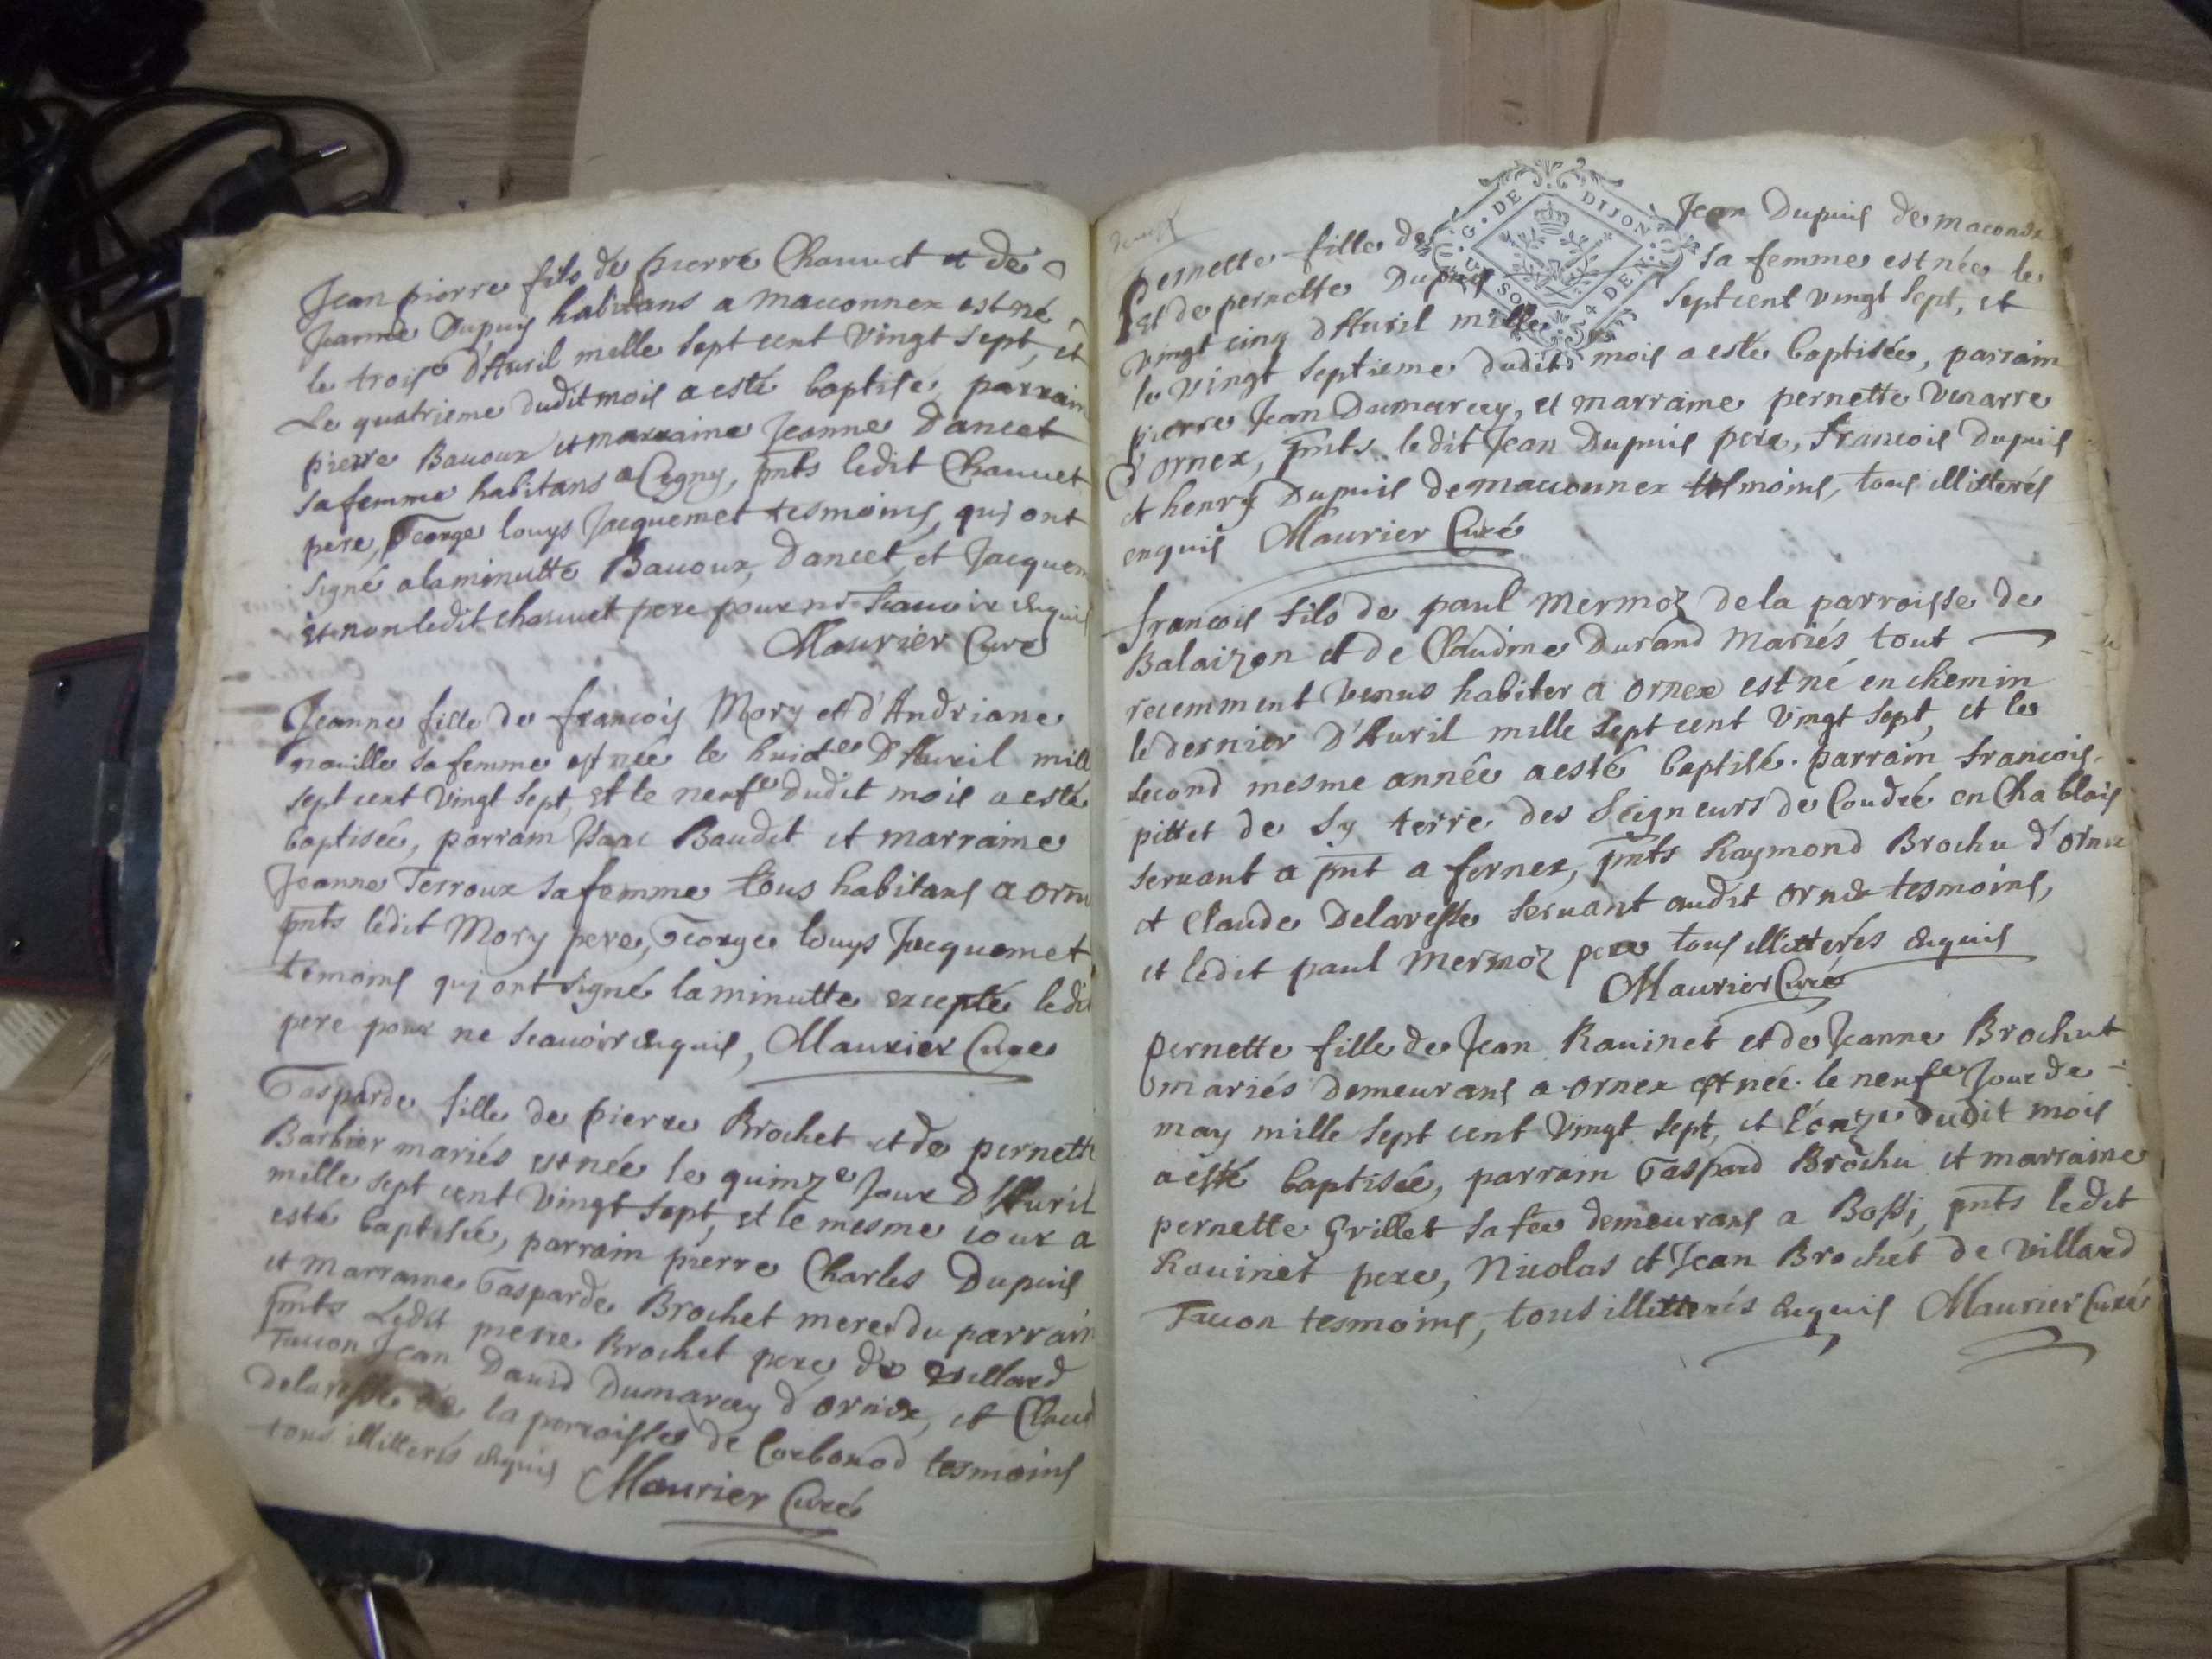 Jean pierre fils de pierre Chauuet et de
Jeanne Dupuy habitans a macconnex est né
le troise d'Auril mille sept cent vingt sept, et
Le quatrieme dudit mois a esté baptisé, parrain
pierre Bauoux et marraine Jeanne Dancet
sa femme habitans a Cegny, pnts ledit Chauuet
pere, George louys Jacquemet tesmoins, qui ont
signé a la minutte Bauoux, Dancet, et Jacquem
et non ledit chauuet pere pour ne scauoir enquis
Maurier Curé
Jeanne fille de francois Mory et d'Andriane
nouille sa femme est née le huicte D'Auril mill
sept cent vingt sept, et le neufe dudit mois a esté
baptisée, parrain Isaac Baudit et marraine
Jeanne Terroux sa femme tous habitans a orn
pnts ledit Mory pere, George louys Jacquemet
temoins qui ont signé la minutte excepté ledi
pere pour ne scauoir enquis, Maurier Curé
Gasparde fille de pierre Brochet et de pernette
Barbier mariés est née le quinze Jour D'Auril
mille sept cent vingt sept, et le mesme iour a
esté baptisée, parrain pierre Charles Dupuis
et marraine Gasparde Brochet mere du parrain
pnts Ledit pierre Brochet pere de villard
Taccon Jean Dauid Dumarcey d'ornex, et Claud
delavesse de la parroisse de Corbonod tesmoins
tous illitterés enquis Maurier Curé
G. DE DIJON
Pernette fille de Jean Dupuis de maconex
Et de pernette Dupuis sa femme est née le
vingt cinq d'Auril mille sept cent vingt sept, et
le vingt septieme dudit mois a esté baptisée, parrain
pierre Jean Dumarcey, et marraine pernette Venarre
d'ornex, pnts ledit Jean Dupuis pere, francois Dupuis
et henry Dupuis de macconnex tesmoins, tous illitterés
enquis Maurier Curé
francois fils de paul Mermoz de la parroisse de
Balaizon et de Claudine Durand Mariés tout
recemment venus habiter a ornex est né en chemin
le dernier D'Auril mille sept cent vingt sept, et le
second mesme année a esté baptisé. parrain francois
pittet de Sy terre des Seigneurs de Coudrée en Chablais
seruant a pnt a fernex, pnts Raymond Brochu d'ornex
et Claude Delavesse seruant audit ornex tesmoins,
et ledit paul Mermoz pere tous illitterés enquis
Maurier Curé
pernette fille de Jean Rauinet et de Jeanne Brochut
mariés demeurans a ornex est née le neufe Jour de
may mille sept cent vingt sept, et l'onze dudit mois
a esté baptisée, parrain Gaspard Brochu et marraine
pernette Grillet sa fee demeurans a Bossi, pnts ledit
Rauinet pere, Nicolas et Jean Brochet de villard
Taccon tesmoins, tous illitterés enquis Maurier Curé